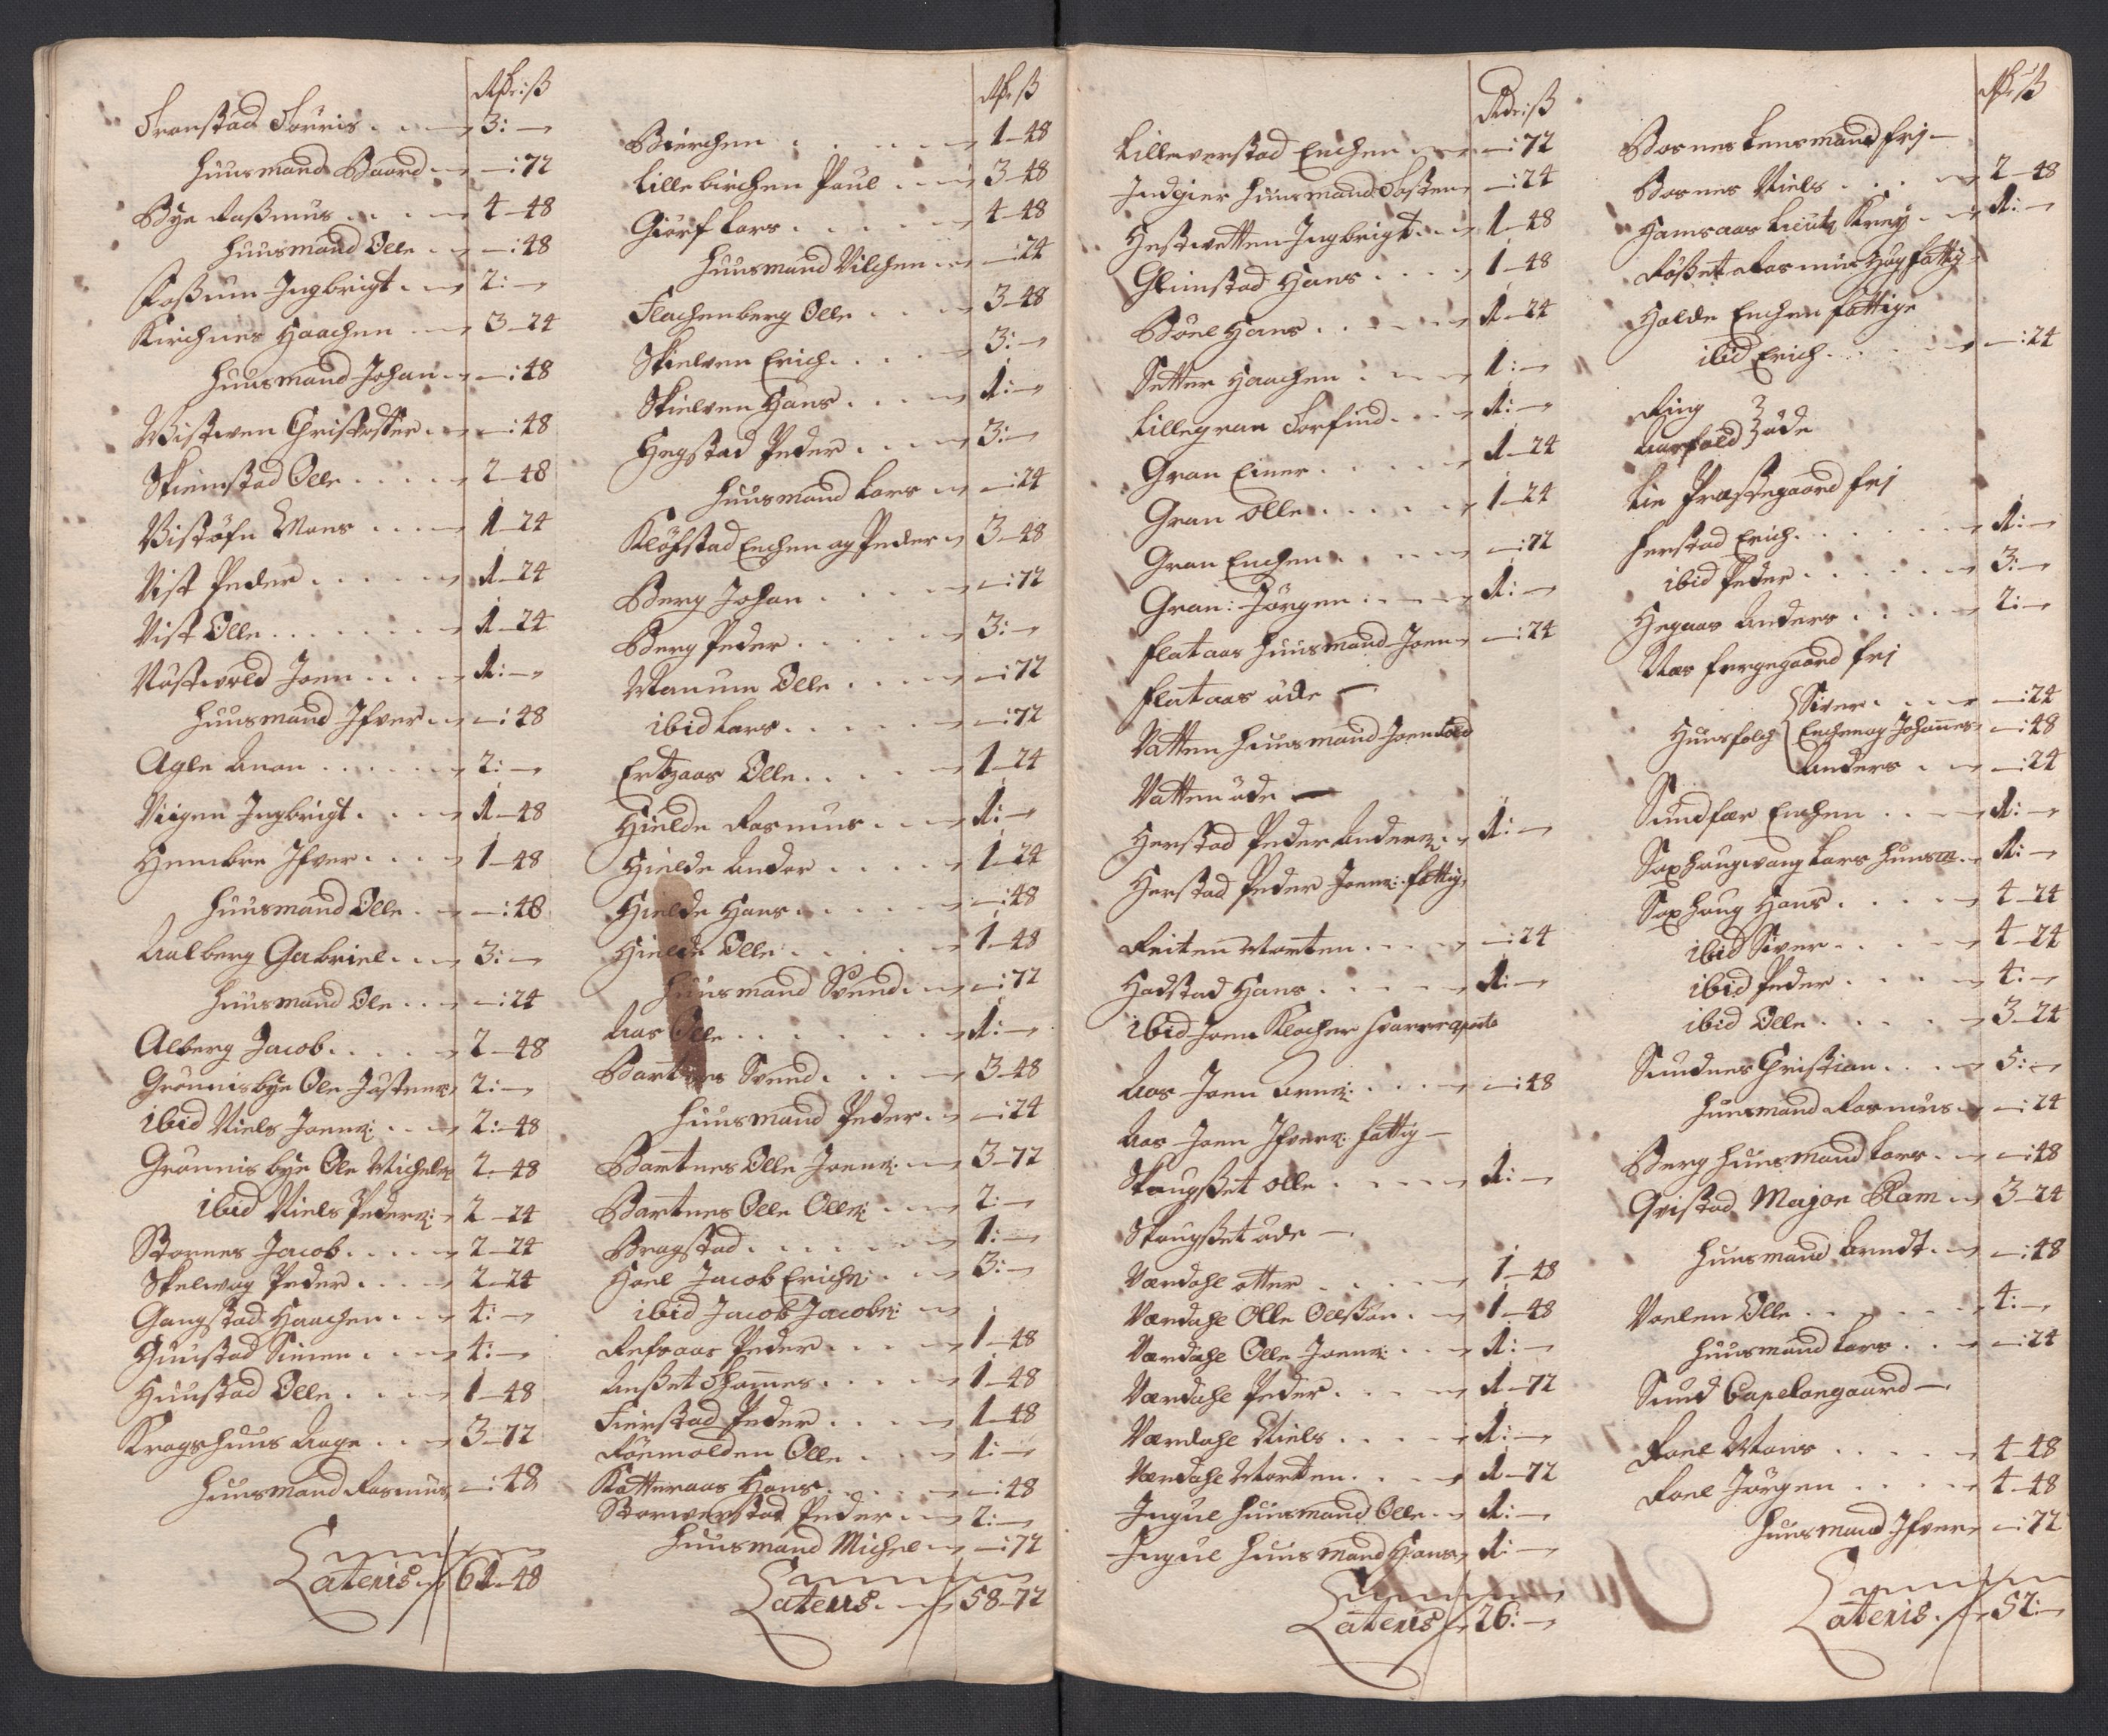 Rdr: ß
Tronstad Tørris . . 3: —
Huusmand Baard — : 72
Bye Raßmus . . . 4 — 48
Huusmand Olle — : 48
Foßum Ingbrigt . . 2: —
Kirchnes Haachen . . 3 — 24
Huusmand Johan — : 48
Wistwen Christopher — : 48
Skiemstad Olle . . . 2 — 48
Vistöfn Mons . . . 1 — 24
Vist Peder . . . . 1 — 24
Vist Olle . . . . 1 — 24
Nöstvold Joen . . . 1: —
Huusmand Ifver — : 48
Agle Anon . . . . 2: —
Viigen Ingbrigt . . . 1 — 48
Hembre Ifver . . . 1 — 48
Huusmand Olle . — : 48
Aalberg Gabriel . . 3: —
Huusmand Ole . . — : 24
Alberg Jacob . . . 2 — 48
Grønnisbye Ole Justens: 2: —
ibid Niels Joens: . . 2: — 48
Grønnisbye Ole Michels: 2 — 48
ibid Niels Peders: 2 — 24
Stornes Jacob . . . 2 — 24
Skelvog Peder . . . 2 — 24
Gangstad Haachen . . 4: —
Huustad Simen . . . 4: —
Huustad Olle . . . 1 — 48
Kragshuus Aage . . 3 — 72
Huusmand Rasmus — : 48
Lateris 61 — 48
Rdr: ß
Bierchen . . . . 1 — 48
Lille birchen Paul . . 3 — 48
Giörf Lars . . . . 4 — 48
Huusmand Vilchen — : 24
Flachenberg Olle . . 3 — 48
Skielven Erich . . . 3: —
Skielven Hans . . . 1: —
Hegstad Peder . . . 3: —
Huusmand Lars — : 24
Kløfstad Enchen og Peder 3 — 48
Berg Johan . . . — : 72
Berg Peder . . . 3: —
Manum Olle . . . — : 72
ibid Lars . . . . — : 72
Ertzaas Olle . . . 1 — 24
Hielde Rasmus . . 1: —
Hielde Andor . . . 1 — 24
Hielde Hans . . . — : 48
Hielde Olle . . . 1 — 48
Huusmand Svend . — : 72
Aas Olle . . . . 1: —
Bartnes Svend . . . 3 — 48
Huusmand Peder . — : 24
Bartnes Olle Joens: — 3 — 72
Bartnes Olle Olls: . . 2: —
Bragstad . . . . 1: —
Hoel Jacob Erichs: . . 3: —
ibid Jacob Jacobs: —
Refsaas Peder . . . 1 — 48
Anßet Thomes . . . 1 — 48
Fierstad Peder . . . 1 — 48
Røemolden Olle . . . 1: —
Katteraas Hans . . . — : 48
Storverstad Peder . . 2: —
Huusmand Michel — : 72
Lateris 58 — 72
Rdr: ß
Lilleverstad Enchen — : 72
Indgier Huusmand Tosten — : 24
Hestvetten Ingbrigt . . 1 — 48
Glimstad Hans . . . 1 — 48
Böel Hans . . . . 1 — 24
Setter Haachen . . . 1: —
Lillegran Torfind . . . 1: —
Gran Einer . . . . 1 — 24
Gran Olle . . . . 1 — 24
Gran Enchen . . . — : 72
Gran: Jörgen . . . 1: —
Flataas Huusmand Joen — : 24
Flataas öde —
Vatten Huusmand Joen
Vatten öde —
Herstad Peder Anders: . 1: —
Herstad Peder Joens: fattig
Reiten Morten . . . — : 24
Hadstad Hans . . . 1: —
ibid Joen Klocher
Aas Joen Arns: . . . — : 48
Aas Joen Ifvers: fattig —
Skougßet Olle . . . 1: —
Skougßet öde —
Værdahl otter . . . 1 — 48
Værdahl Olle Ollßøn . . 1 — 48
Værdahl Olle Joens: . . 1: —
Værdahl Peder . . . 1 — 72
Værdahl Niels . . . 1: —
Værdahl Morten . . . 1 — 72
Ingul Huusmand Olle . . 1: —
Ingul Huusmand Hans 1: —
Lateris 26: —
Rdr: ß
Bosnes Lensmand frj —
Bosnes Niels . . . 2 — 48
Hamraas Lieut: Krey . . 1: —
Røßet Rasmus Hög fattig
Holde Enchen fattige
ibid Erich . . . . — : 24
Ring
Aarfald } öde
Lie Præstegaard frj
Herstad Erich . . . 1: —
ibid Peder . . . . 3: —
Hegaas Anders . . . 2: —
Næs fergegaard frj
Huusfolch { Siver . . . — : 24
Enchen og Johannes — : 48
Anders . . — : 24
Sundfær Enchen . . 1: —
Saxhaugvang Lars Huusm. 1: —
Saxhaug Hans . . . 4 — 24
ibid Siver . . . . 4 — 24
ibid Peder . . . . 4: —
ibid Olle . . . . 3 — 24
Sundnes Christian . . . 5: —
Huusmand Rasmus — : 24
Berg Huusmand Lars . . — : 48
Qvistad Major Ram . . 3 — 24
Huusmand Arndt . — : 48
Voelen Olle . . . . 4: —
Huusmand Lars . . — : 24
Sund Capelangaard —
Roel Mons . . . . 4 — 48
Roel Jörgen . . . 4 — 48
Huusmand Ifver — : 72
Lateris . 52: —